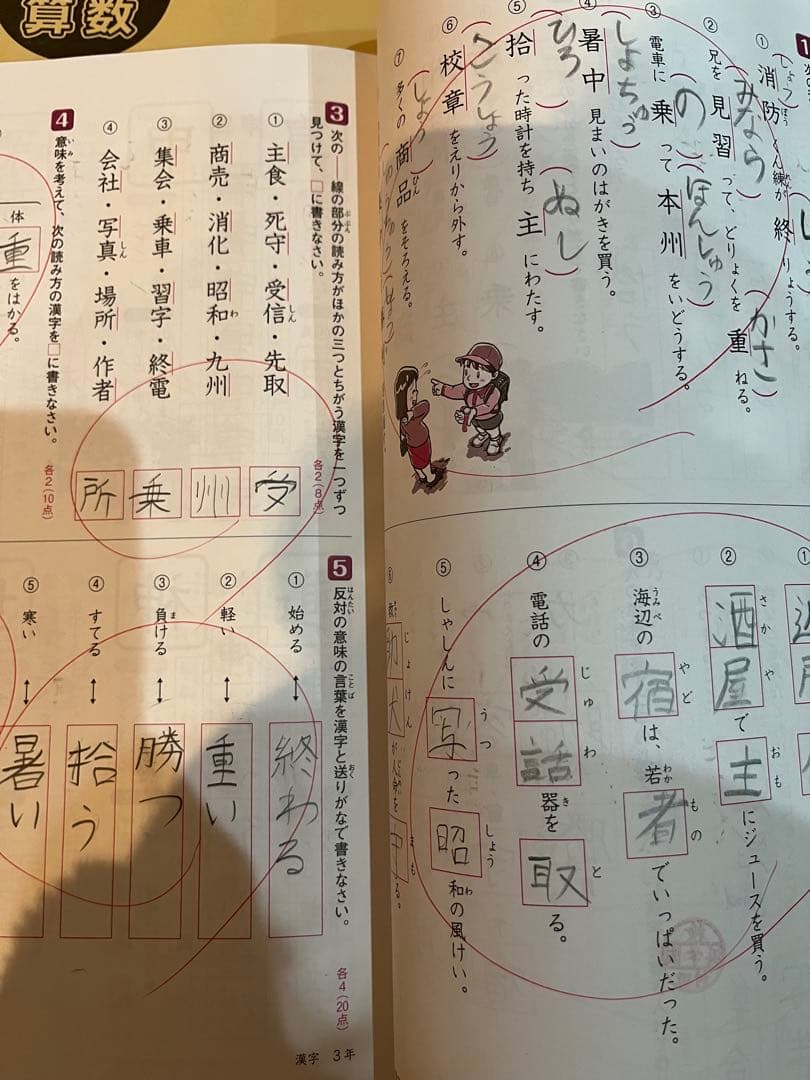 算数
1
① 消防くん練が終りょうする。
しょう ぼう
② 兄を見習って、どりょくを重ねる。
みなら かさ
③ 電車に乗って本州をいどうする。
の ほんしゅう
④ 暑中見まいのはがきを買う。
しょちゅう
⑤ 拾った時計を持ち主にわたす。
ひろ ぬし
⑥ 校章をえりから外す。
こうしょう
⑦ 多くの商品をそろえる。
しょう ひん
①
② 酒屋で主にジュースを買う。
さか や おも
③ 海辺の宿は、若者でいっぱいだった。
うみべ やど わか もの
④ 電話の受話器を取る。
じゅ わ き と
⑤ しゃしんに写った昭和の風けい。
うつ しょう わ
じょ けん まも
3 次の──線の部分の読み方がほかの三つとちがう漢字を一つずつ
見つけて、□に書きなさい。
各2(8点)
① 主食・死守・受信・先取
② 商売・消化・昭和・九州
③ 集会・乗車・習字・終電
④ 会社・写真・場所・作者
受
州
乗
所
4 意味を考えて、次の読み方の漢字を□に書きなさい。
各2(10点)
体重をはかる。
5 反対の意味の言葉を漢字と送りがなで書きなさい。
各4(20点)
① 始める ↔ 終わる
② 軽い ↔ 重い
③ 負ける ↔ 勝つ
④ すてる ↔ 拾う
⑤ 寒い ↔ 暑い
漢字 3年